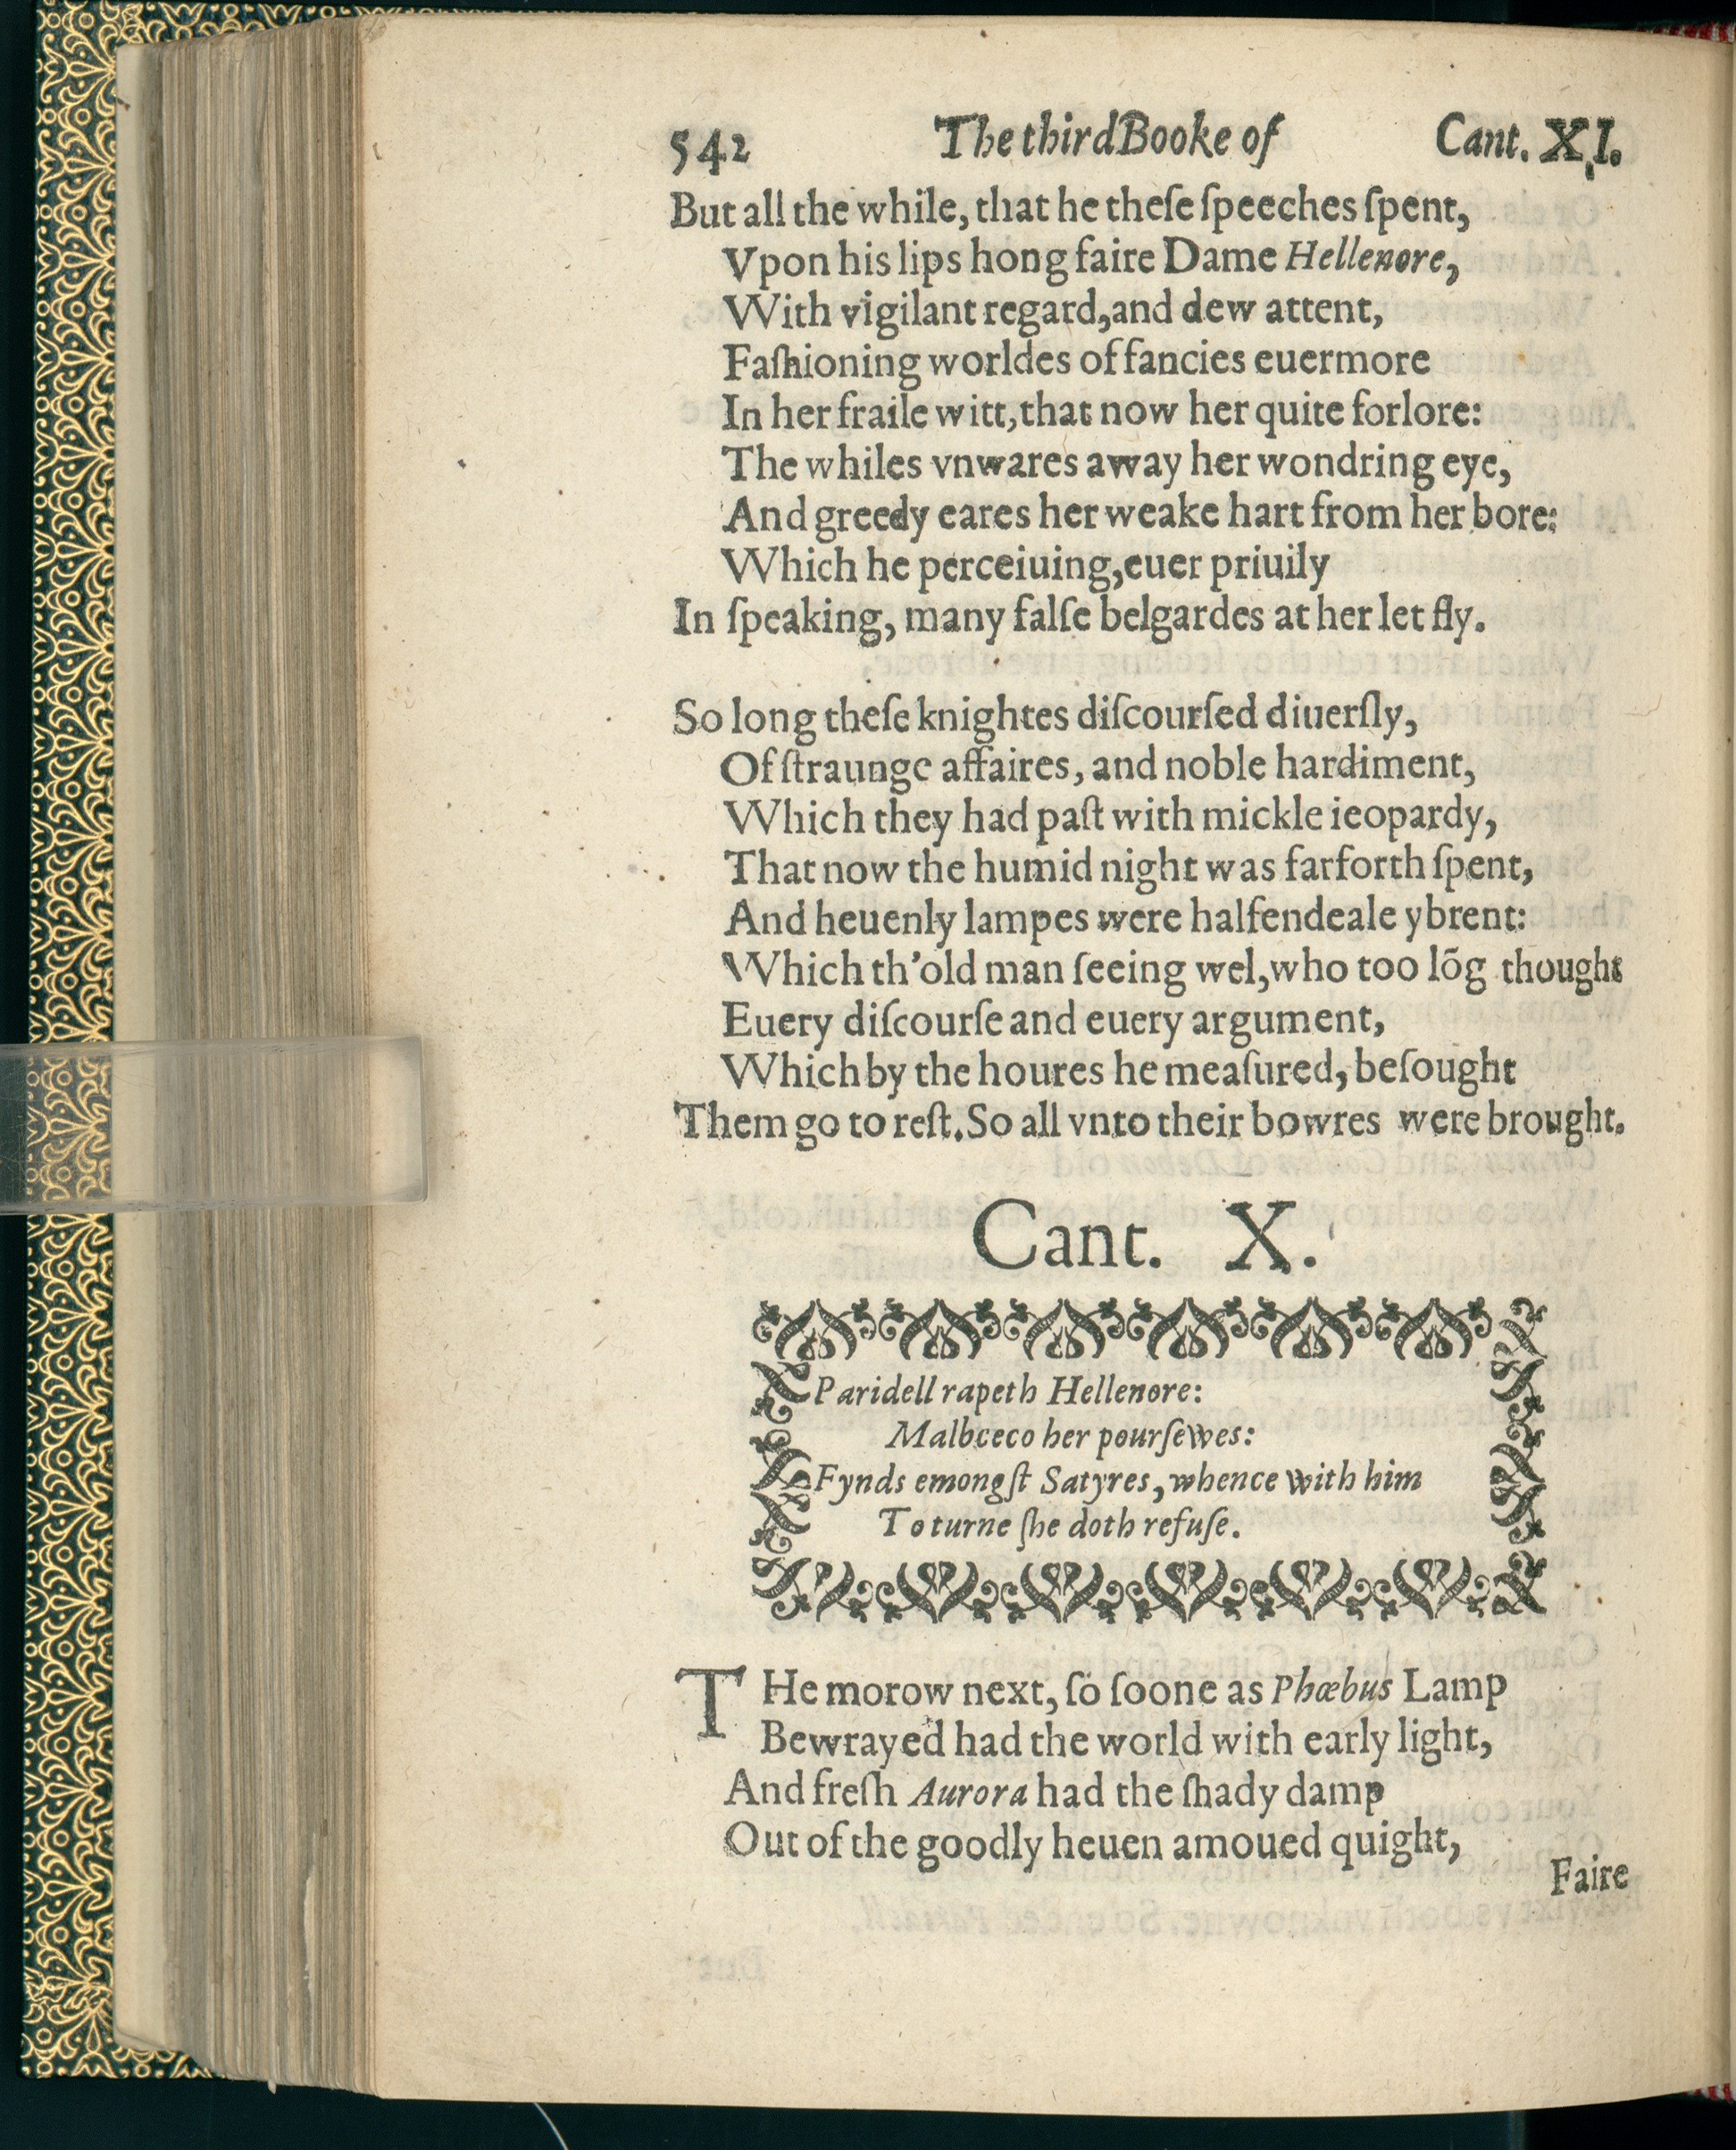 542 The third Booke of Cant. XI.
But all the while, that he theſe ſpeeches ſpent,
Vpon his lips hong faire Dame Hellenore,
With vigilant regard, and dew attent,
Faſhioning worldes of fancies euermore
In her fraile witt, that now her quite forlore:
The whiles vnwares away her wondring eye,
And greedy eares her weake hart from her bore:
Which he perceiuing, euer priuily
In ſpeaking, many falſe belgardes at her let fly.
So long theſe knightes diſcourſed diuerſly,
Of ſtraunge affaires, and noble hardiment,
Which they had paſt with mickle ieopardy,
That now the humid night was farforth ſpent,
And heuenly lampes were halfendeale ybrent:
Which th'old man ſeeing wel, who too lõg thought
Euery diſcourſe and euery argument,
Which by the houres he meaſured, beſought
Them go to reſt. So all vnto their bowres were brought.
Cant. X.
Paridell rapeth Hellenore:
Malbceco her pourſewes:
Fynds emongſt Satyres, whence with him
To turne ſhe doth refuſe.
THe morow next, ſo ſoone as Phœbus Lamp
Bewrayed had the world with early light,
And freſh Aurora had the ſhady damp
Out of the goodly heuen amoued quight,
Faire